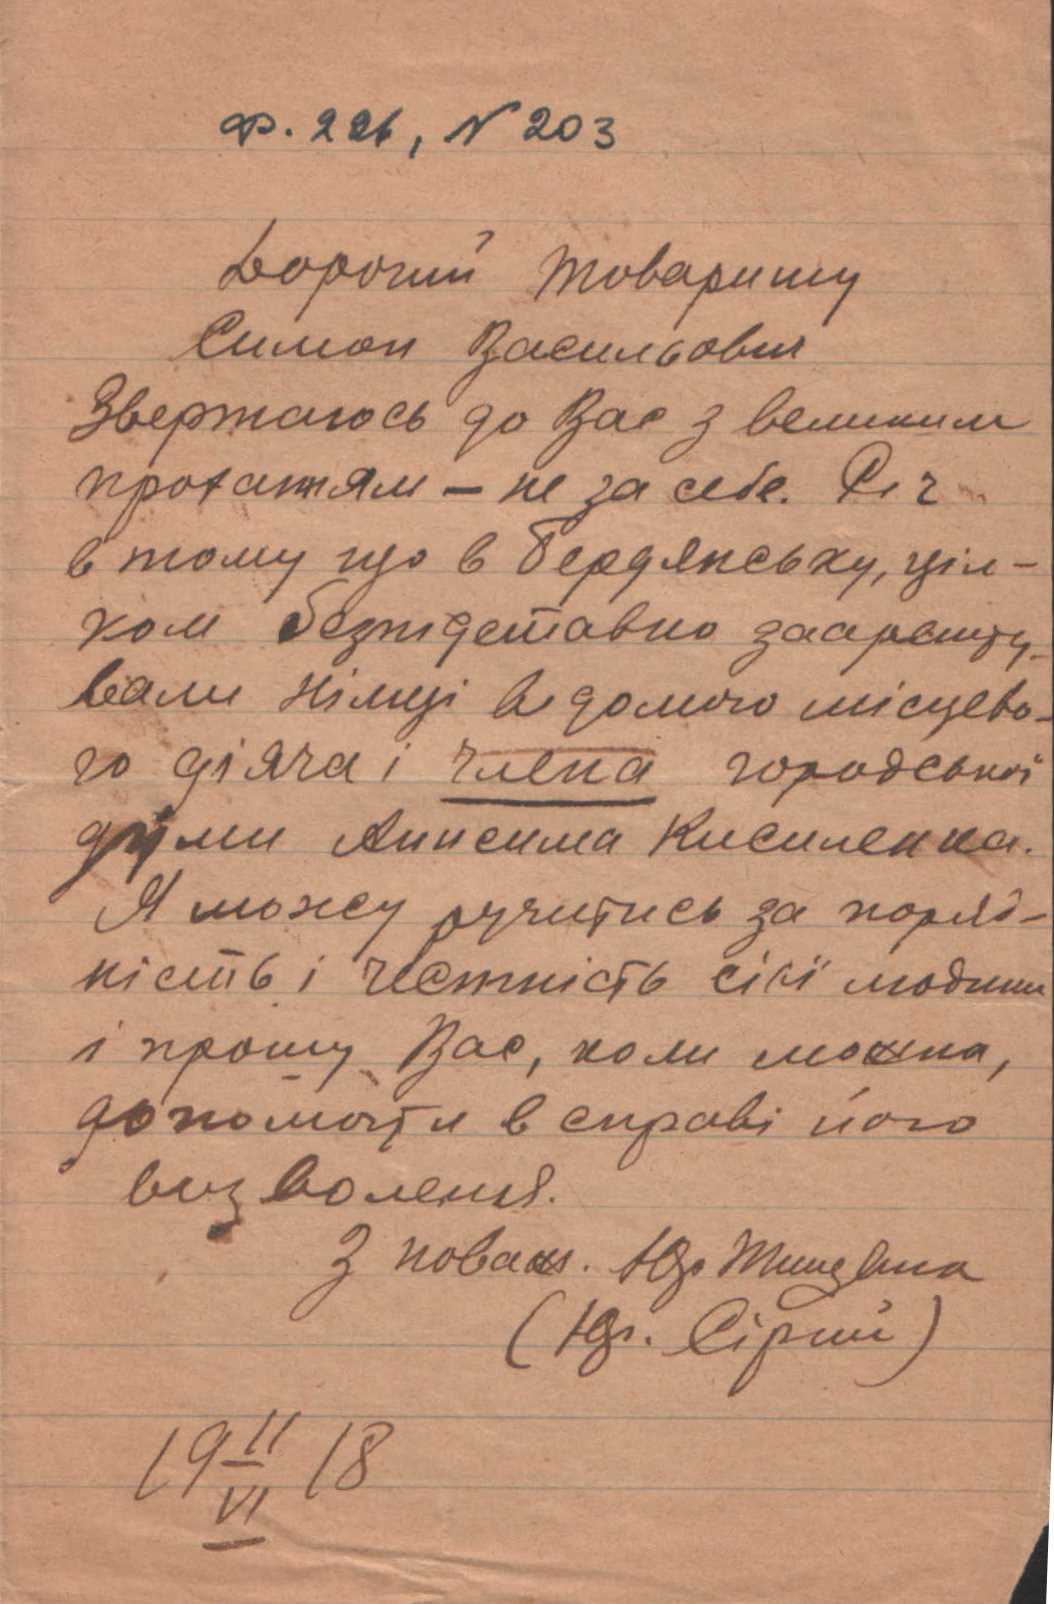 Ф. 226, N 203
Дорогий Товаришу
Симон Васильович
Звертаюсь до Вас з великим
проханням – не за себе. Річ
в тому що в Бердянську, ціл-
ком безпідставно заарешту-
вали німці відомого місцево-
го діяча і члена городської
думи Анисима Кисиленка.
Я можу ручитись за поряд-
ність і чесність сієї людини
і прошу Вас, коли можна,
допомогти в справі його
визволення.
З поваж. Юр Тищенко
(Юр. Сірий)
19 11/VI 18